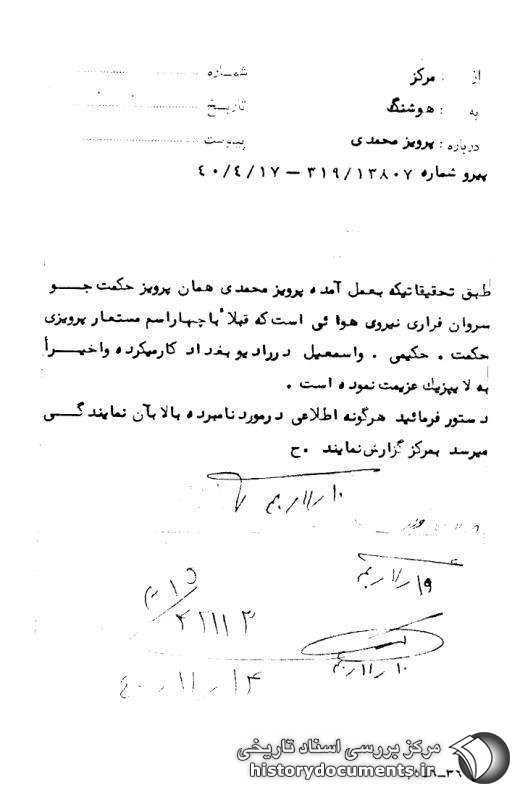 از : مرکز
شماره
به : هوشنگ
تاریخ
درباره : پرویز محمدی
پیوست
پیرو شماره ۳۱۹/۱۳۸۰۷ – ۴۰/۴/۱۷
طبق تحقیقاتیکه بعمل آمده پرویز محمدی همان پرویز حکمت جو
سروان فراری نیروی هوائی است که قبلا" با چهار اسم مستعار پرویزی
حکمت . حکیمی . واسمعیل در رادیو بغداد کار میکرده واخیراً
به لایپزیک عزیمت نموده است .
دستور فرمائید هرگونه اطلاعی در مورد نامبرده بالا بآن نمایندگی
میرسد بمرکز گزارش نمایند . ح
۴۰/۱۱/۱۰
۴۰/۱۱/۱۹
۴۰/۱۱/۱۰
۴۰/۱۱/۱۴
مرکز بررسی اسناد تاریخی
historydocuments.ir